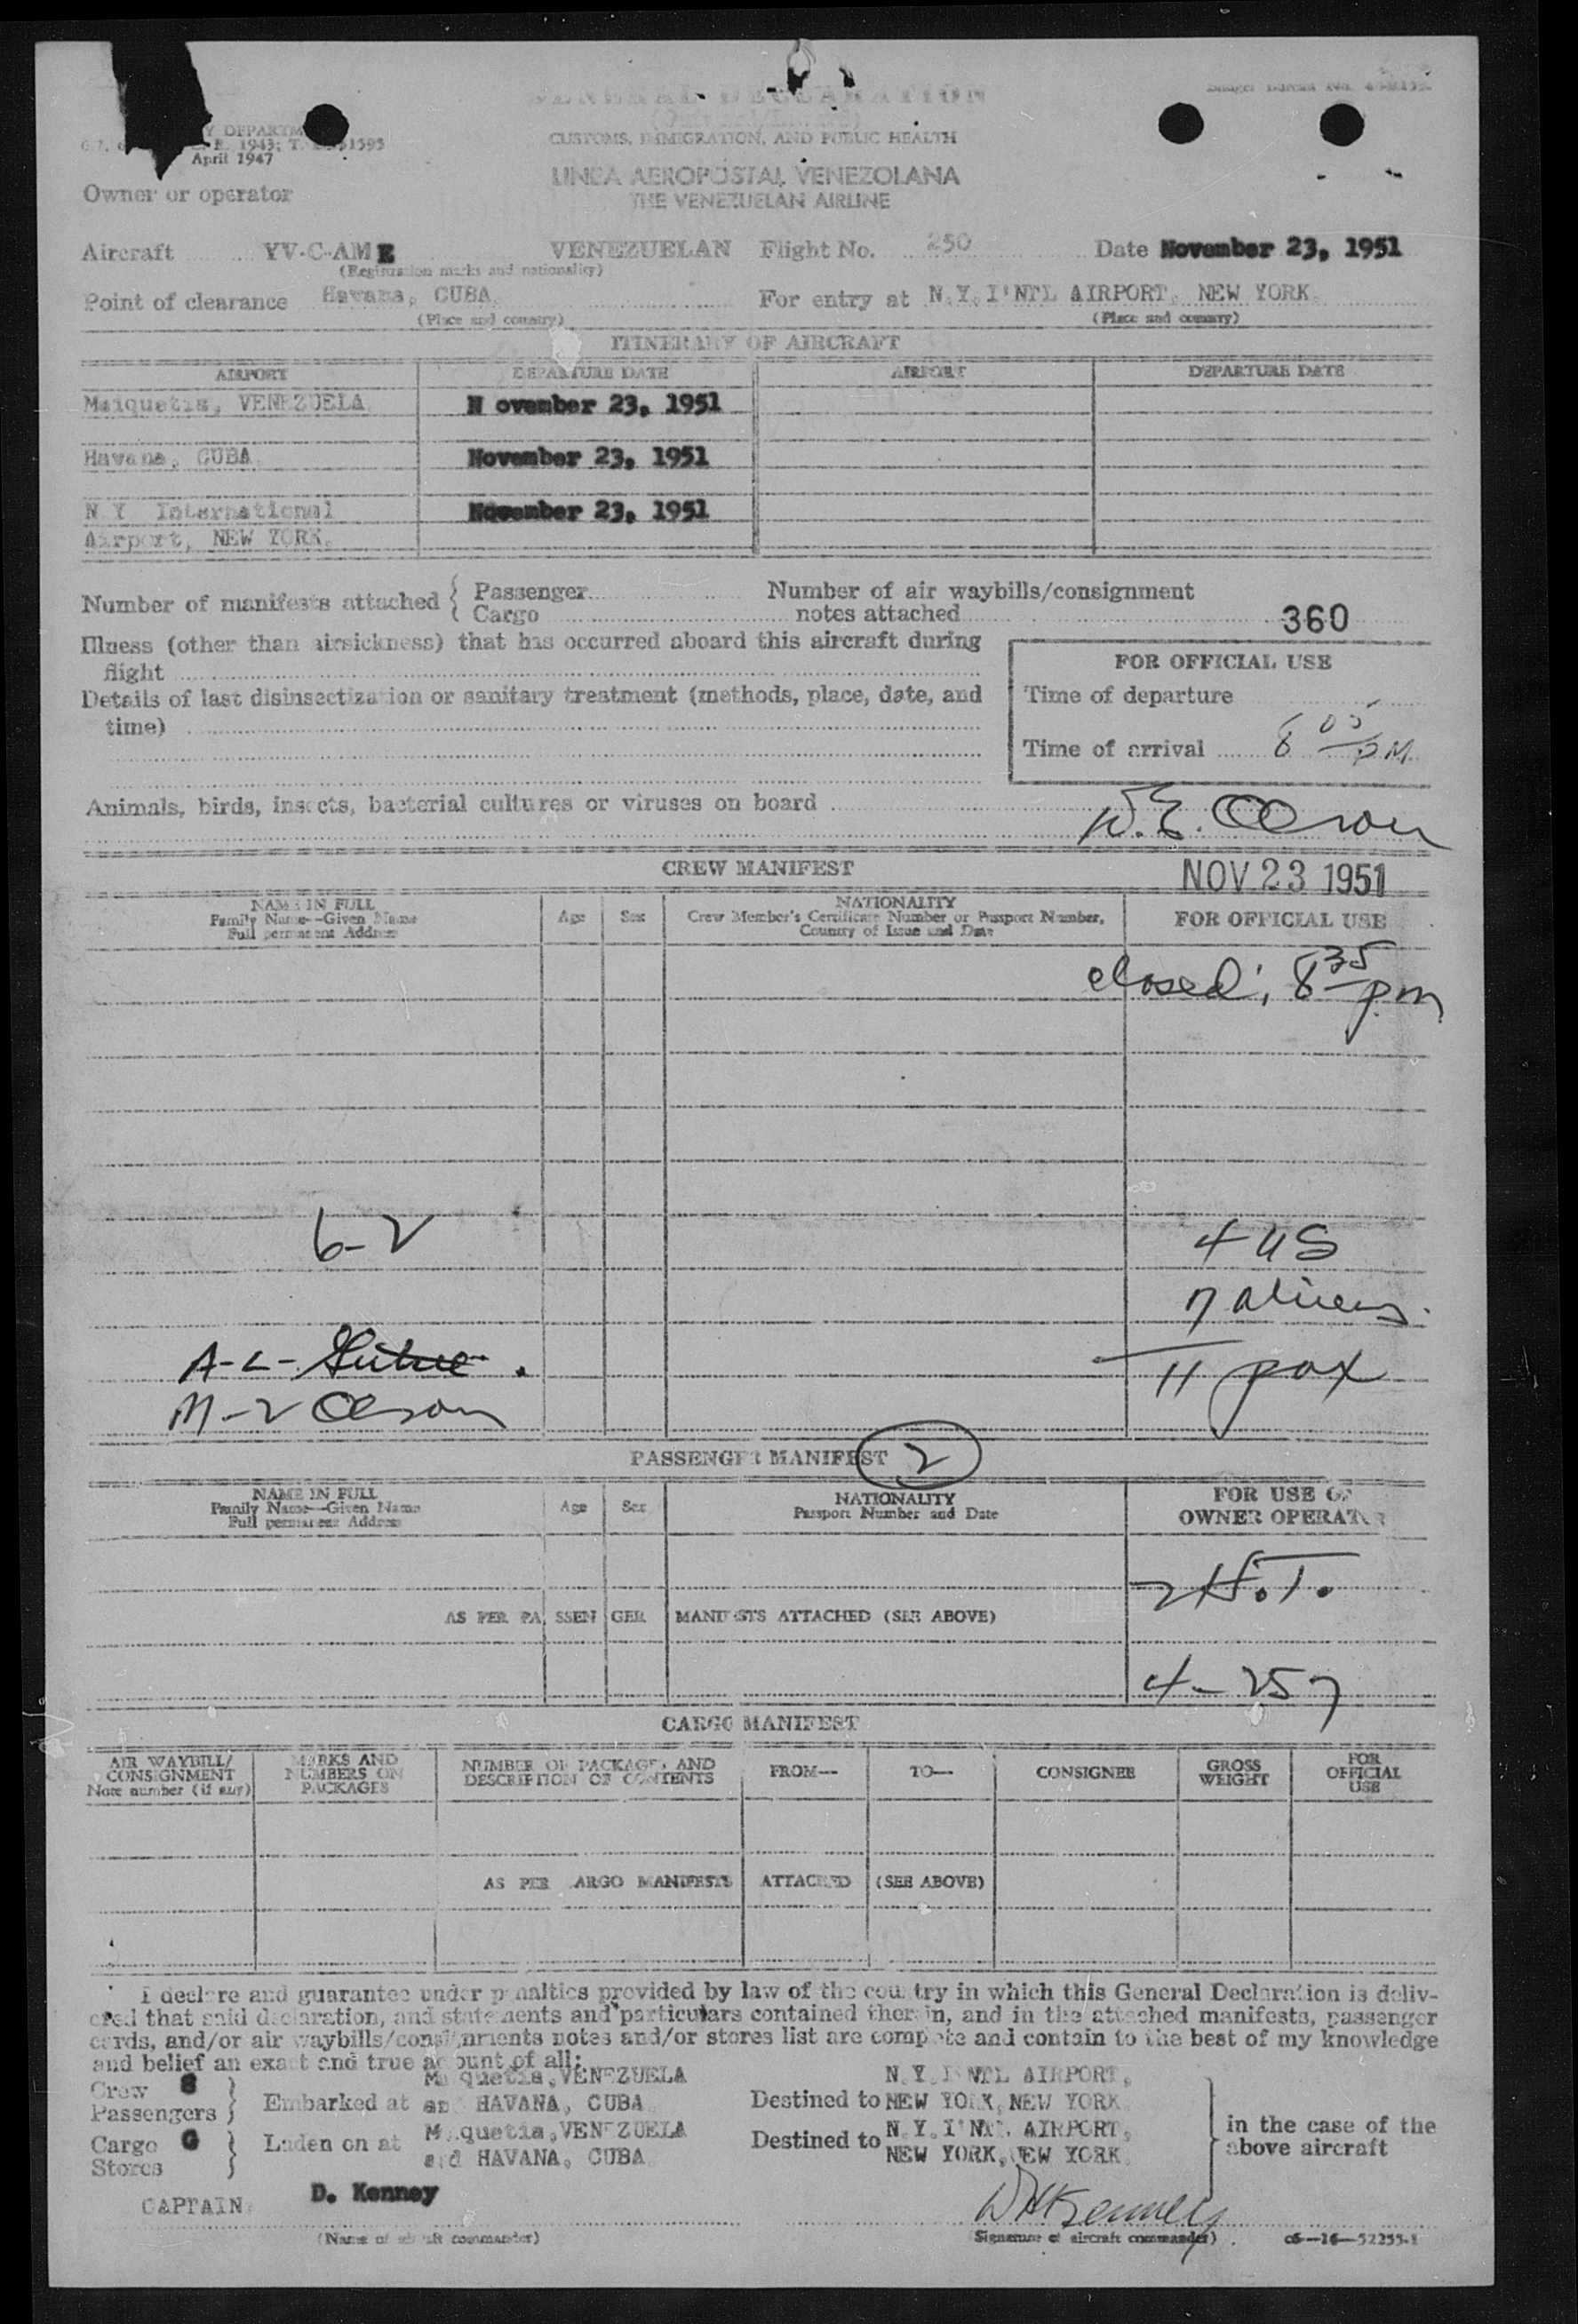 GENERAL DECLARATION
CUSTOMS, IMMIGRATION, AND PUBLIC HEALTH
April 1947
LINEA AEROPOSTAL VENEZOLANA
THE VENEZUELAN AIRLINE
Owner or operator
Aircraft YV-C-AME VENEZUELAN Flight No. 250 Date November 23, 1951
(Registration marks and nationality)
Point of clearance Havana, CUBA For entry at N.Y.I'NTL AIRPORT, NEW YORK.
(Place and country) (Place and country)
ITINERARY OF AIRCRAFT
AIRPORT DEPARTURE DATE AIRPORT DEPARTURE DATE
Maiquetia, VENEZUELA N ovember 23, 1951
Havana, CUBA November 23, 1951
N Y International November 23, 1951
Airport, NEW YORK.
Number of manifests attached { Passenger Number of air waybills/consignment
Cargo notes attached 360
Illness (other than airsickness) that has occurred aboard this aircraft during
flight
FOR OFFICIAL USE
Details of last disinsectization or sanitary treatment (methods, place, date, and
time)
Time of departure
Time of arrival 8 05 PM
Animals, birds, insects, bacterial cultures or viruses on board
W.E. Olson
CREW MANIFEST NOV 23 1951
NAME IN FULL
Family Name--Given Name
Full permanent Address
Age Sex
NATIONALITY
Crew Member's Certificate Number or Passport Number,
Country of Issue and Date
FOR OFFICIAL USE
closed; 8 35 pm
6-2 4 US
7 aliens.
A-L- 11 pax
M-2 Olson
PASSENGER MANIFEST 2
NAME IN FULL
Family Name--Given Name
Full permanent Address
Age Sex
NATIONALITY
Passport Number and Date
FOR USE OF
OWNER OPERATOR
2 H.T.
AS PER PA SSEN GER MANIFESTS ATTACHED (SEE ABOVE)
4-257
CARGO MANIFEST
AIR WAYBILL/
CONSIGNMENT
Note number (if any)
MARKS AND
NUMBERS ON
PACKAGES
NUMBER OF PACKAGES AND
DESCRIPTION OF CONTENTS
FROM-- TO-- CONSIGNEE
GROSS
WEIGHT
FOR
OFFICIAL
USE
AS PER ARGO MANIFESTS ATTACHED (SEE ABOVE)
I declare and guarantee under penalties provided by law of the country in which this General Declaration is deliv-
ered that said declaration, and statements and particulars contained therein, and in the attached manifests, passenger
cards, and/or air waybills/consignments notes and/or stores list are complete and contain to the best of my knowledge
and belief an exact and true account of all:
Crew
Passengers } Embarked at Maiquetia, VENEZUELA
and HAVANA, CUBA
Destined to N.Y.I'NTL AIRPORT,
NEW YORK, NEW YORK
Cargo
Stores } Laden on at Maiquetia, VENEZUELA
and HAVANA, CUBA
Destined to N.Y.I'NTL AIRPORT,
NEW YORK, NEW YORK
in the case of the
above aircraft
CAPTAIN: D. Kenney
(Name of aircraft commander)
(Signature of aircraft commander) c5--16--52255-1